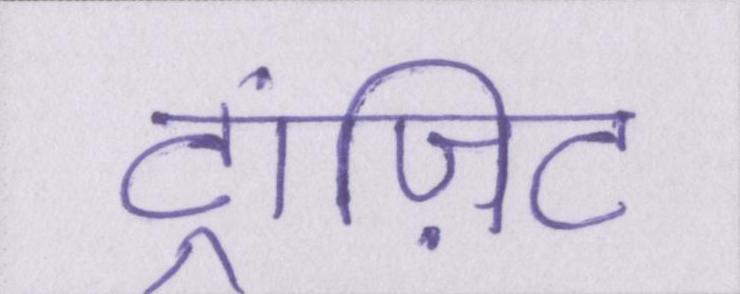 ट्रांज़िट